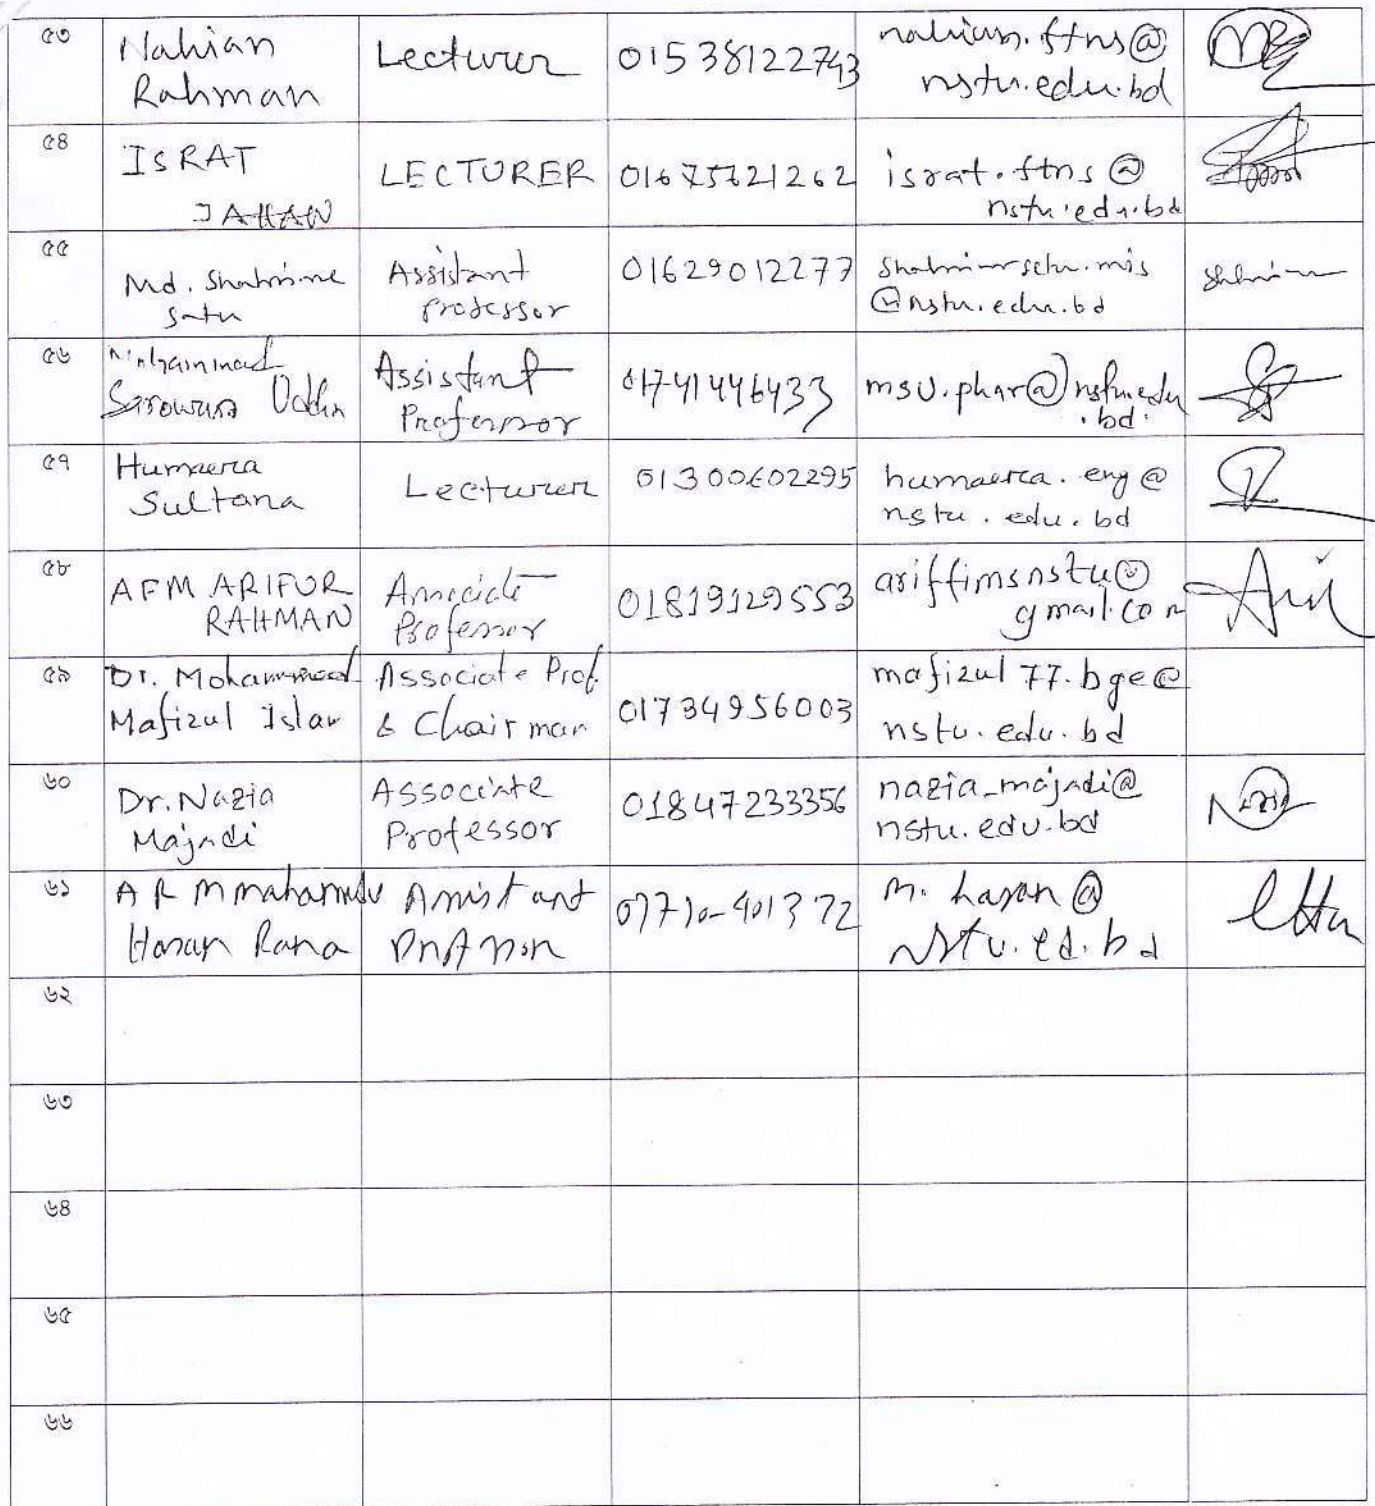 ৫৩
Nahian
Rahman
Lecturer
01538122743
nahian.ftns@
nstu.edu.bd
৫৪
ISRAT
JAHAN
LECTURER
01675621262
israt.ftns@
nstu.edu.bd
৫৫
Md. Shahriare
Satu
Assistant
Professor
01629012277
@nstu.edu.bd
৫৬
Mohammad
Sarowar Uddin
Assistant
Professor
01741446433
msu.phar@nstu.edu
.bd
৫৭
Humaera
Sultana
Lecturer
01300602295
humaera.eng@
nstu.edu.bd
৫৮
AFM ARIFUR
RAHMAN
Associate
Professor
01819129553
ariffimsnstu@
gmail.com
৫৯
Dr. Mohammad
Mafizul Islam
Associate Prof.
& Chairman
01734956003
mafizul77.bge@
nstu.edu.bd
৬০
Dr. Nazia
Majadi
Associate
Professor
01847233356
nazia_majadi@
nstu.edu.bd
৬১
A R M Mahamudul
Hasan Rana
Assistant
Professor
01710-401372
m.hasan@
nstu.ed.bd
৬২
৬৩
৬৪
৬৫
৬৬